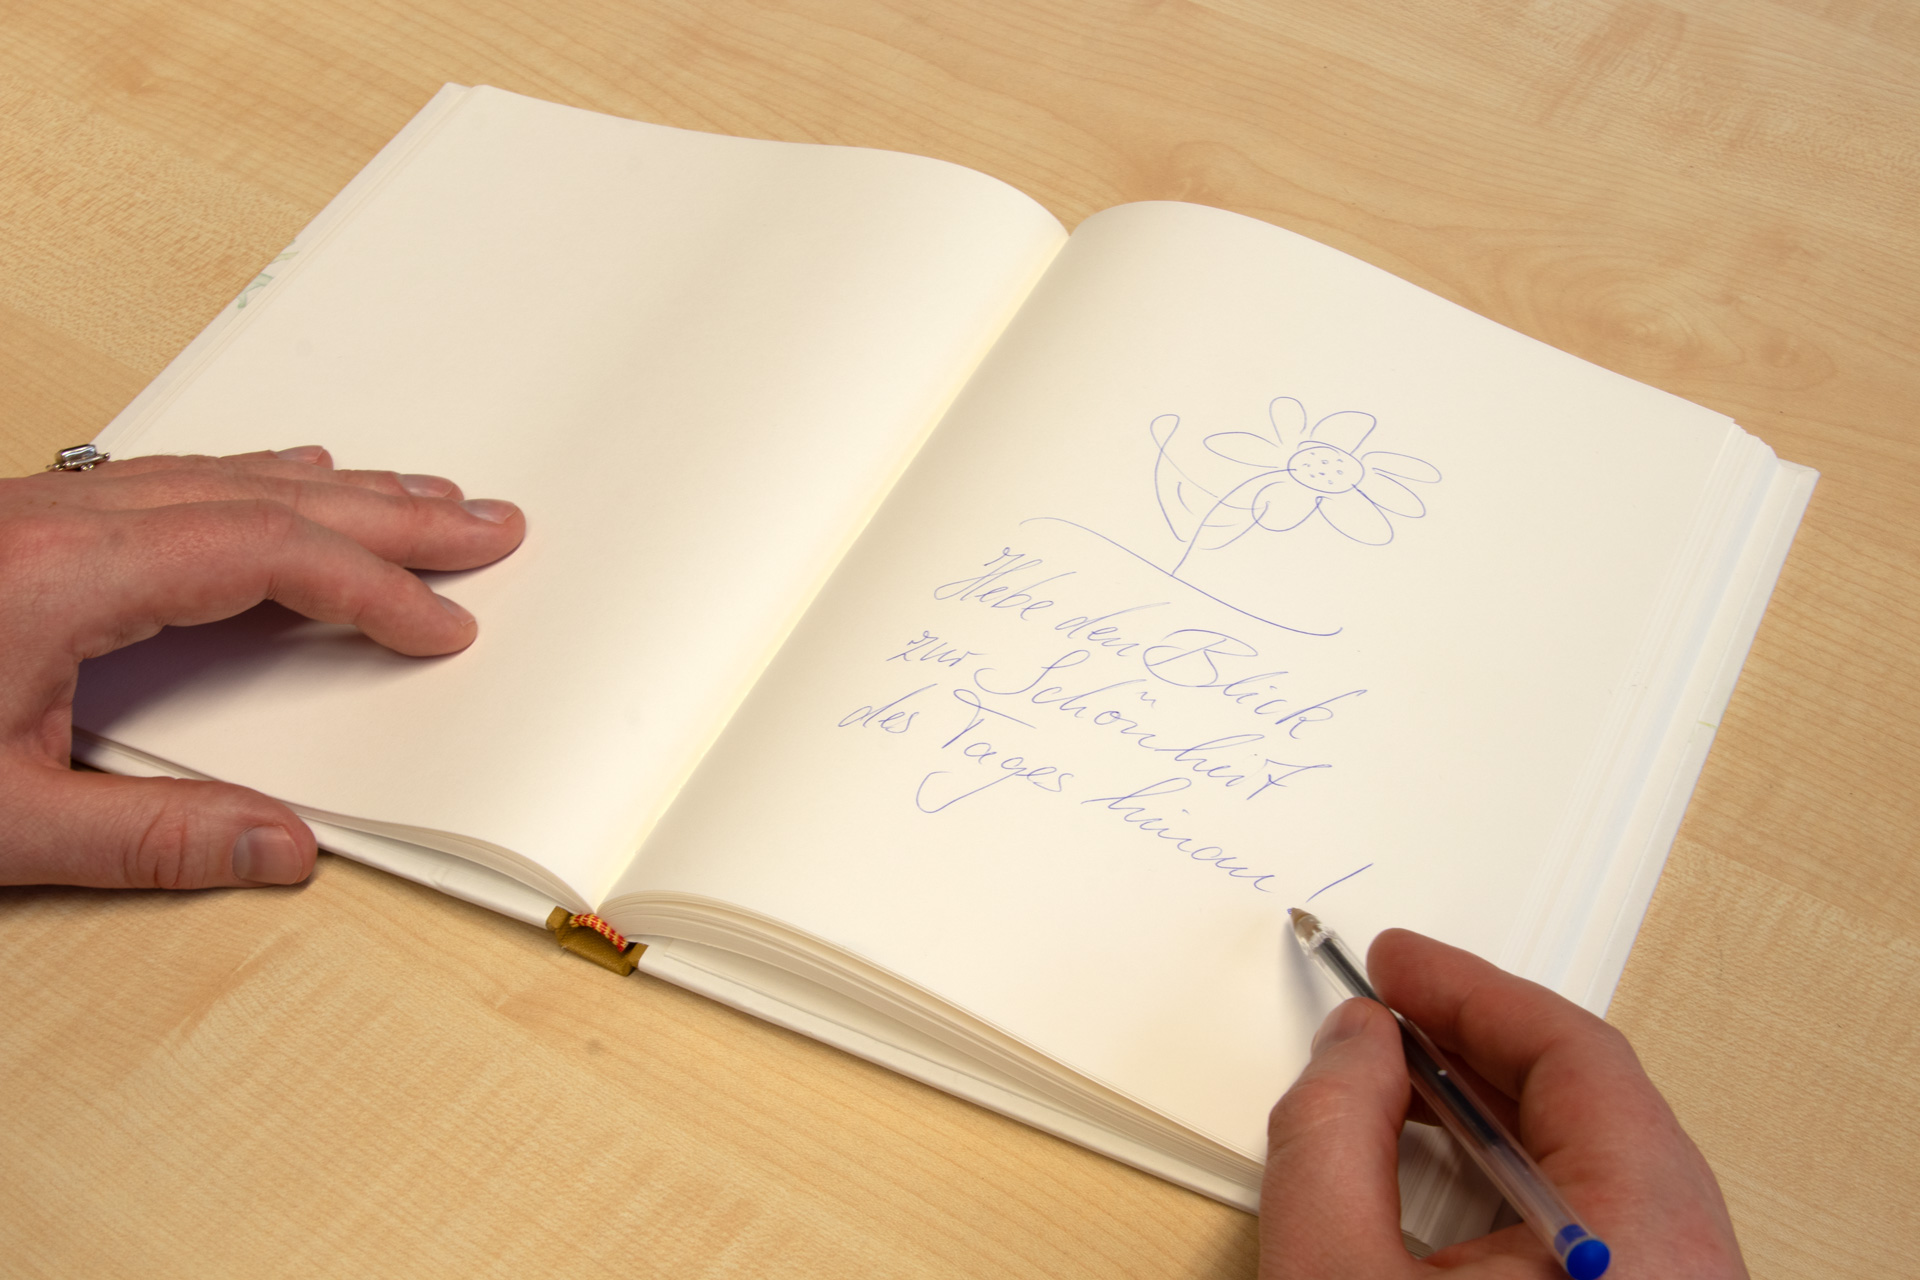 Hebe den Blick
zur Schönheit
des Tages hinan!